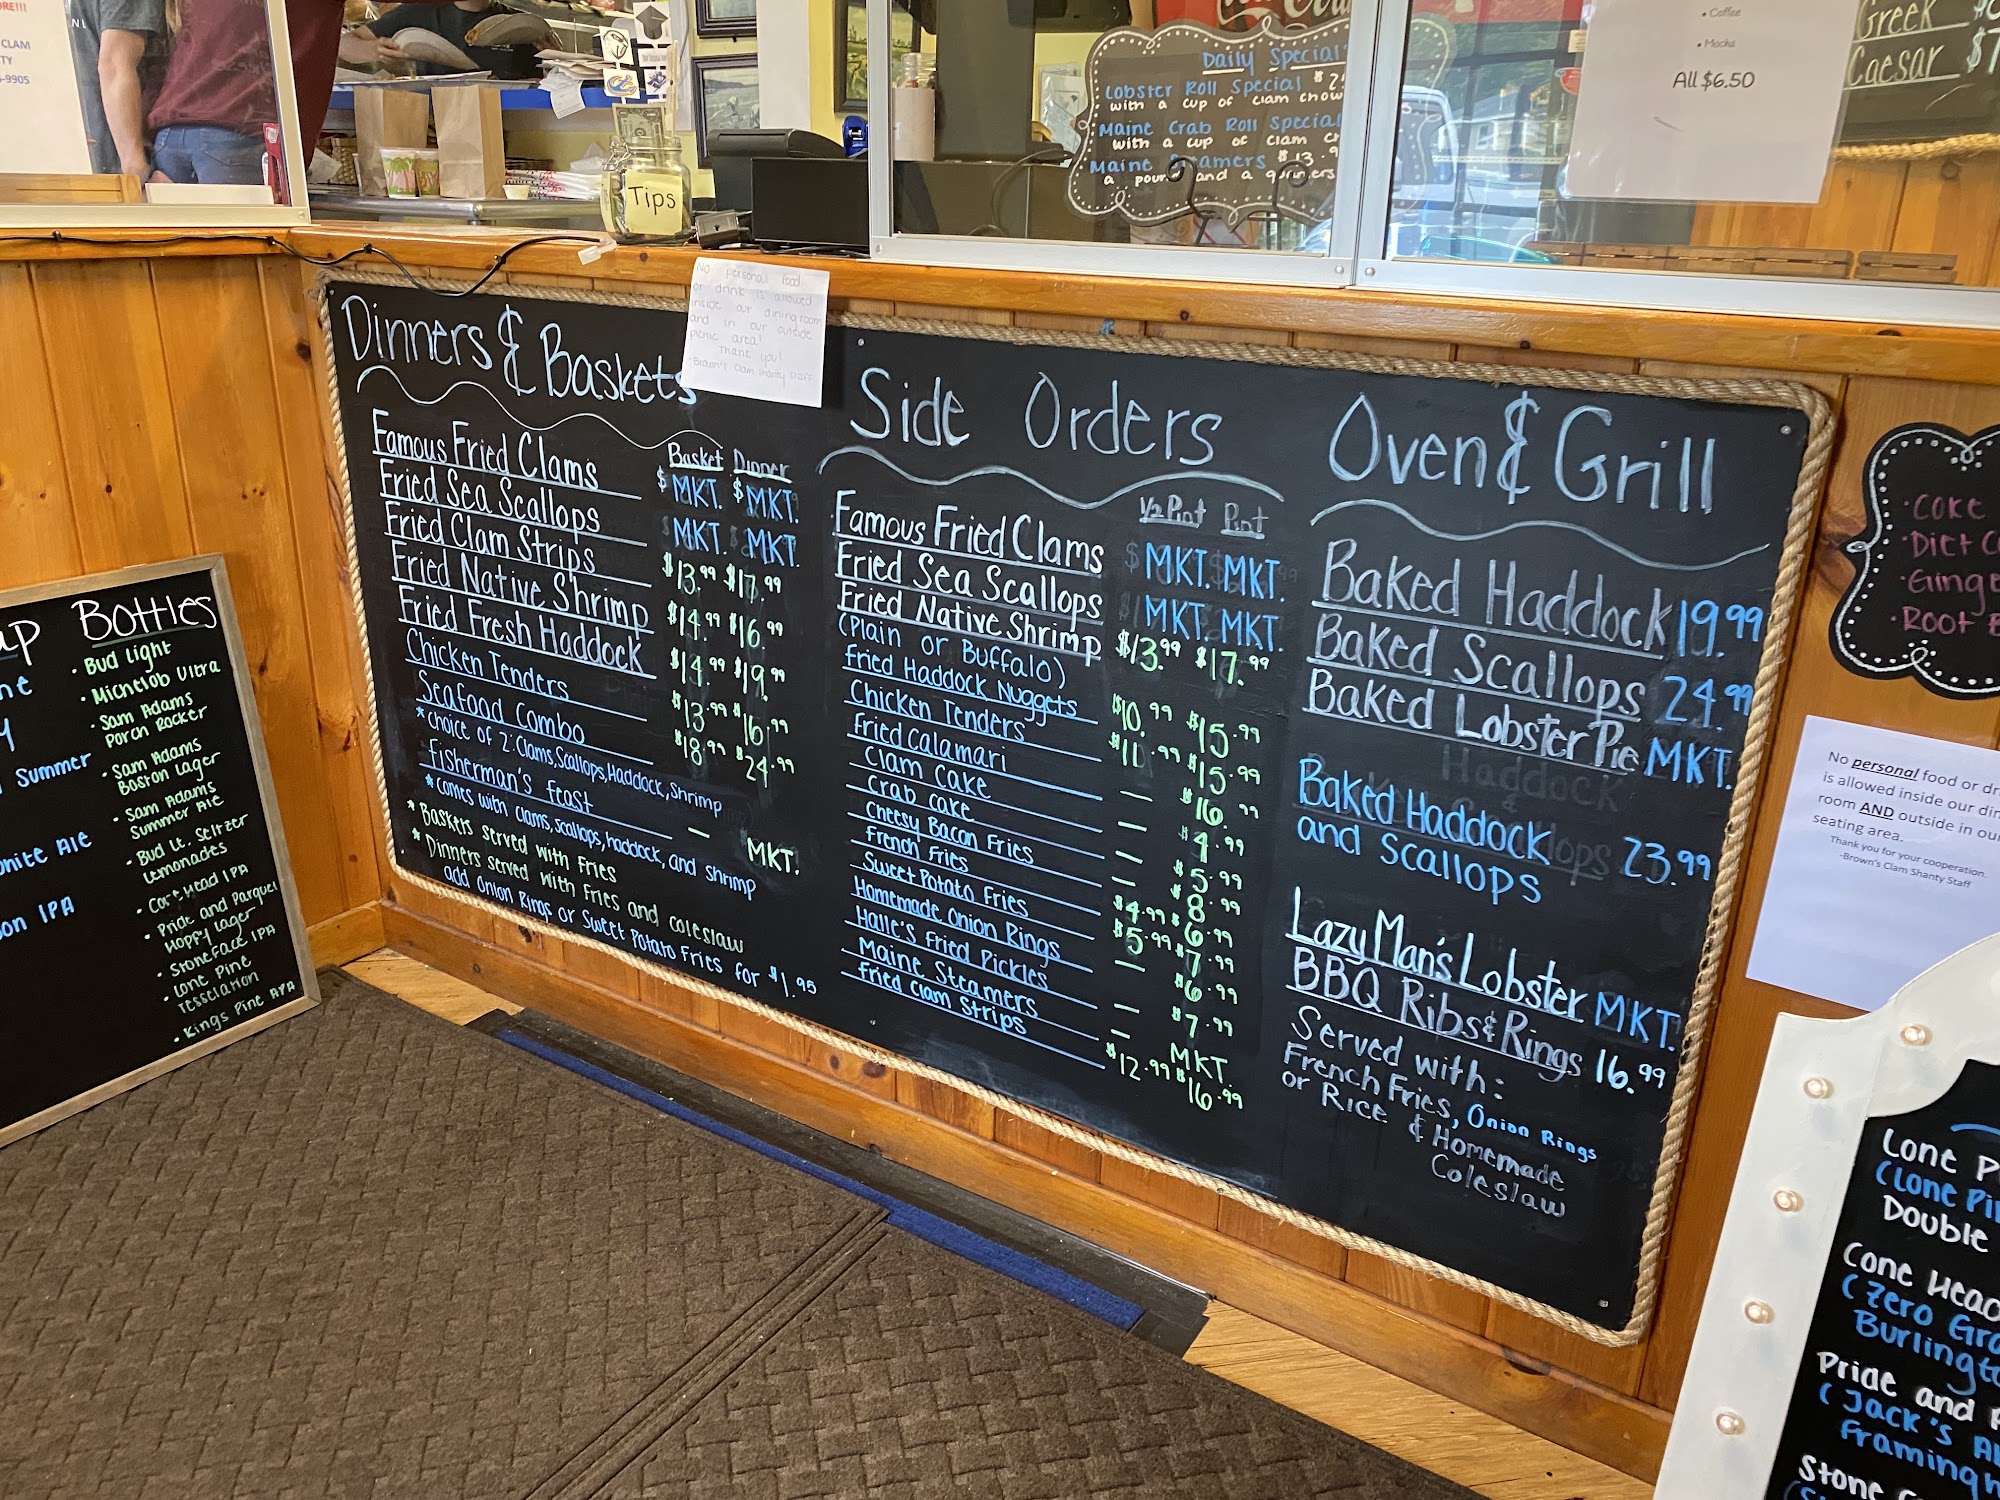 CLAM
-9905
Tips
Daily Special
Lobster Roll Special
with a cup of clam chow
Maine Crab Roll Special
with a cup of clam
Maine Steamers $13.9
a pound and a
• Coffee
• Mocha
All $6.50
Greek
Caesar
No personal food
or drink is allowed
inside our dining room
and in our outside
picnic area!
Thank you!
-Brown's Clam Shanty Staff
Dinners & Baskets
Basket Dinner
Famous Fried Clams $ MKT. $ MKT.
Fried Sea Scallops MKT. MKT.
Fried Clam Strips $13.99 $17.99
Fried Native Shrimp $14.99 $16.99
Fried Fresh Haddock $14.99 $19.99
Chicken Tenders $13.99 $16.99
Seafood Combo $18.99 $24.99
*choice of 2: Clams, Scallops, Haddock, Shrimp
Fisherman's Feast — MKT.
*comes with clams, scallops, haddock, and shrimp
* Baskets served with Fries
* Dinners served with Fries and coleslaw
add Onion Rings or Sweet Potato Fries for $1.95
Side Orders
1/2 Pint Pint
Famous Fried Clams $ MKT. MKT.
Fried Sea Scallops MKT. MKT.
Fried Native Shrimp $13.99 $17.99
(Plain or Buffalo)
Fried Haddock Nuggets $10.99 $15.99
Chicken Tenders $11.99 $15.99
Fried Calamari — $16.99
Clam Cake — $4.99
Crab Cake — $5.99
Cheesy Bacon Fries — $8.99
French Fries $4.99 $6.99
Sweet Potato Fries $5.99 $7.99
Homemade Onion Rings — $6.99
Halle's Fried Pickles — $7.99
Maine Steamers — MKT.
Fried Clam Strips $12.99 $16.99
Oven & Grill
Baked Haddock 19.99
Baked Scallops 24.99
Baked Lobster Pie MKT.
Baked Haddock
and Scallops 23.99
Lazy Man's Lobster MKT.
BBQ Ribs & Rings 16.99
Served with:
French Fries, Onion Rings
or Rice & Homemade
Coleslaw
Bottles
• Bud Light
• Michelob Ultra
• Sam Adams
Porch Rocker
• Sam Adams
Boston Lager
• Sam Adams
Summer Ale
• Bud Lt. Seltzer
Lemonades
• Cone Head IPA
• Pride and Parquet
Hoppy Lager
• Stoneface IPA
• Lone Pine
Tesselation
• Kings Pine APA
Summer
Ale
IPA
• Coke
• Diet
• Ginge
• Root
No personal food or dr
is allowed inside our din
room AND outside in our
seating area.
Thank you for your cooperation.
-Brown's Clam Shanty Staff
Lone P
(Lone Pin
Double
Cone Head
(Zero Gra
Burlingto
Pride and
(Jack's A
Framingh
Stone